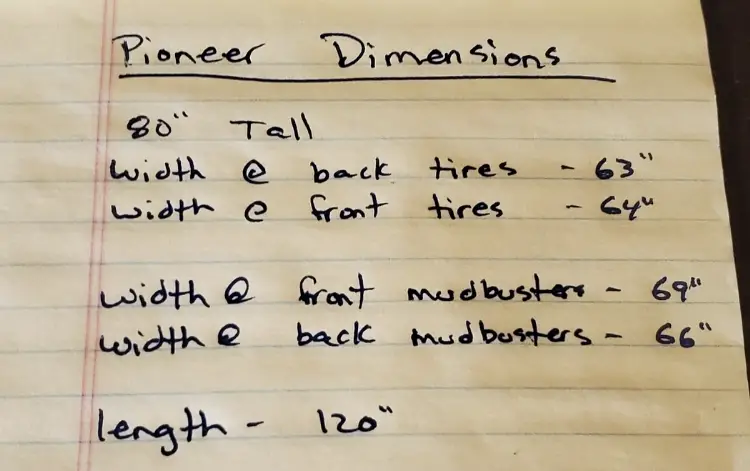 Pioneer Dimensions
80" Tall
width @ back tires - 63"
width @ front tires - 64"
width @ front mudbusters - 69"
width @ back mudbusters - 66"
length - 120"